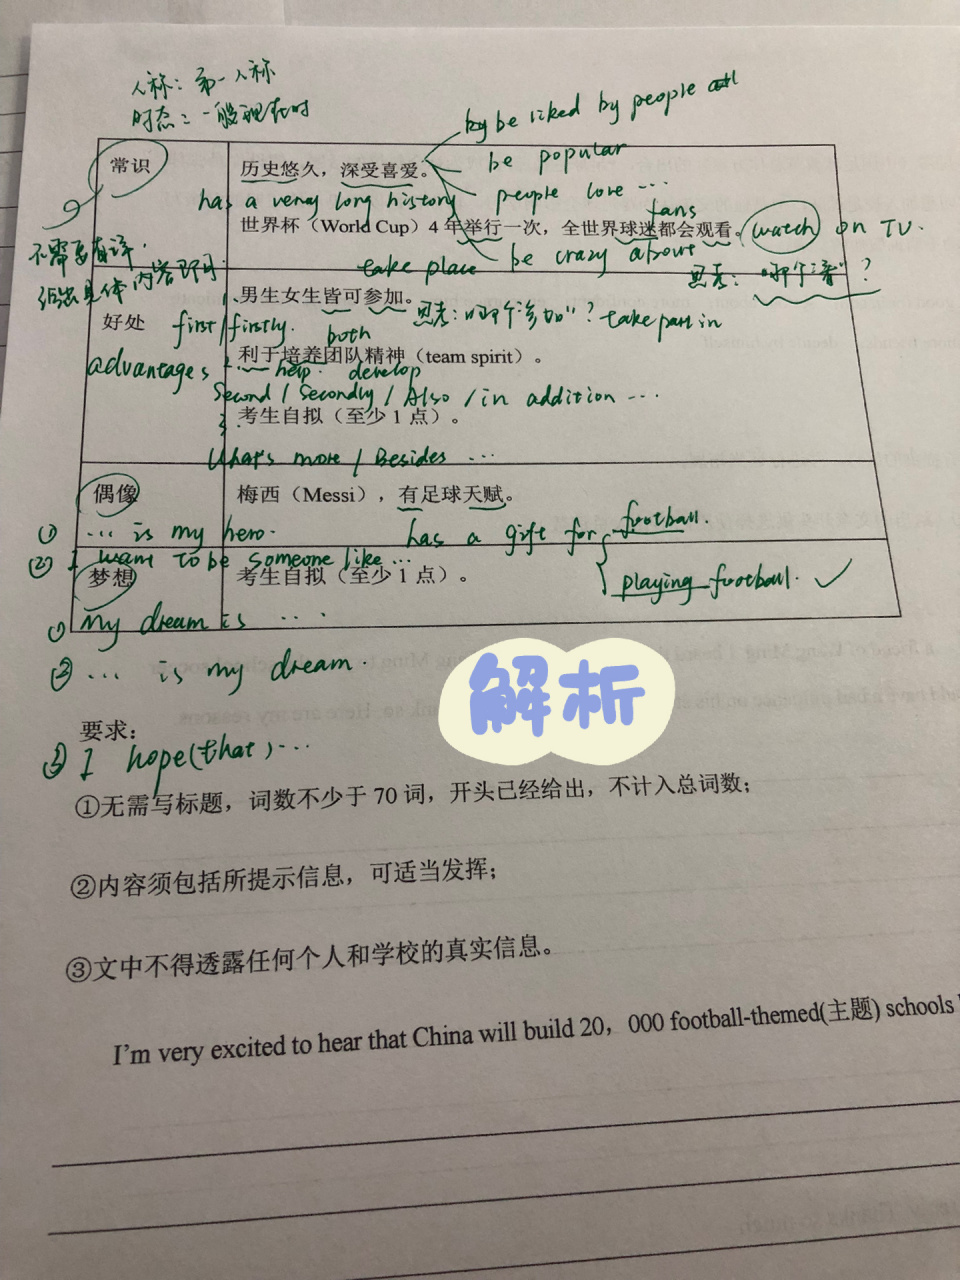 人称：第一人称
时态：一般现在时
by be liked by people
be popular
常识
历史悠久，深受喜爱。
has a very long history
people love ...
世界杯（World Cup）4 年举行一次，全世界球迷都会观看。
fans
watch on TV.
take place
be crazy about
思考："哪个看"？
不需要翻译，
给出具体内容即可
好处
advantages
男生女生皆可参加。
first/firstly.
both
思考："哪个参加"？take part in
利于培养团队精神（team spirit）。
help. develop
Second / Secondly / Also / in addition ...
考生自拟（至少 1 点）。
What's more / Besides ...
偶像
梅西（Messi），有足球天赋。
① ... is my hero.
has a gift for
football.
playing football. ✓
② I want to be someone like ...
梦想
考生自拟（至少 1 点）。
① My dream is ...
② ... is my dream.
解析
要求：
③ I hope(that) ...
①无需写标题，词数不少于 70 词，开头已经给出，不计入总词数；
②内容须包括所提示信息，可适当发挥；
③文中不得透露任何个人和学校的真实信息。
I'm very excited to hear that China will build 20，000 football-themed(主题) schools